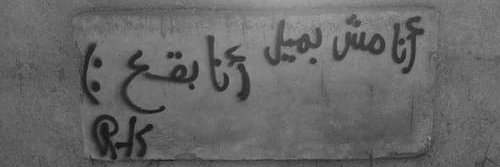 أنا مش بميل أنا بقع :)
R-K